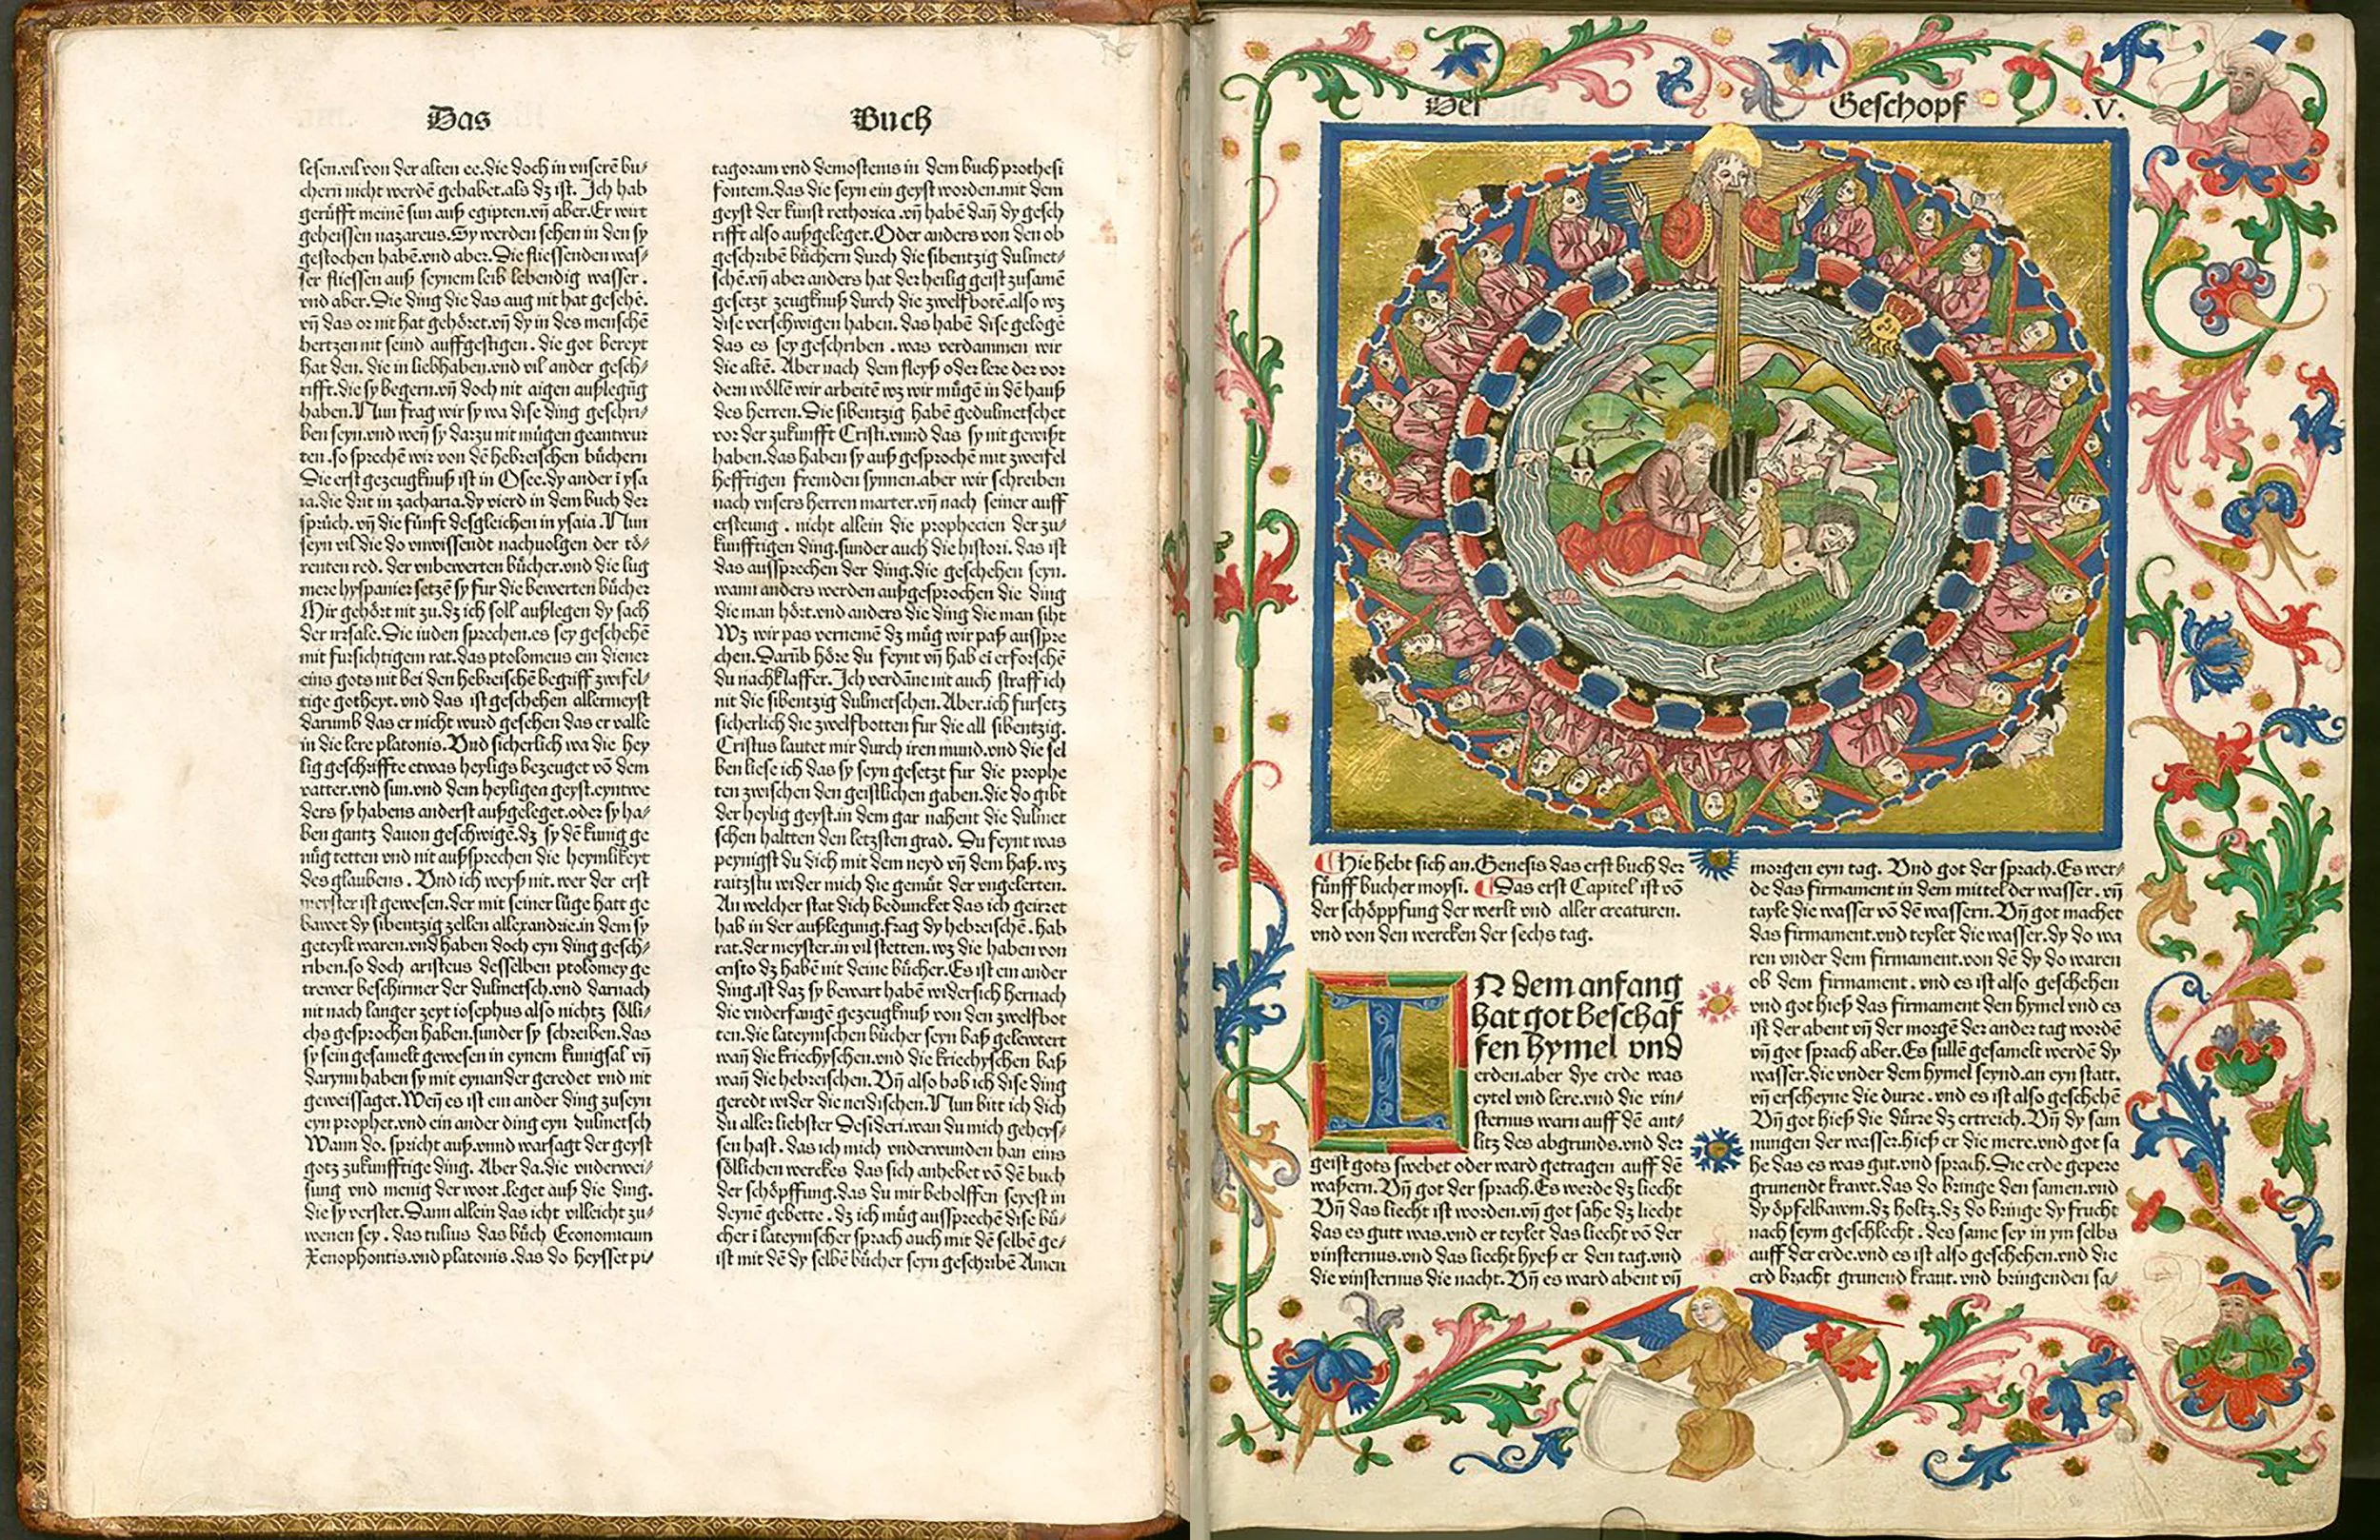 Das Buch
lesen.vil von der alten ee.die doch in vnserē bu⸗
chern nicht werdē gehabet.als dz ist. Ich hab
gerüfft meinē sun auß egipten.vn̄ aber.Er wirt
geheissen nazareus.Sy werden sehen in den sy
gestochen habē.vnd aber.Die fliessenden was⸗
ser fliessen auß seynem leib lebendig wasser.
vnd aber.Die ding die das aug nit hat gesehē.
vn̄ das or nit hat gehöret.vn̄ dy in des menschē
hertzen nit seind auffgestigen.die got bereyt
hat den.die in liebhaben.vnd vil ander gesch⸗
rifft.die sy begern.vn̄ doch nit aigen außlegūg
haben.Nun frag wir sy wa dise ding geschri⸗
ben seyn.vnd wen̄ sy darzu nit mügen geantwur
ten.so sprechē wir von dē hebreischen büchern
Die erst gezeugknuß ist in Osee.dy ander ī ysa
ia.die drit in zacharia.dy vierd in dem buch der
sprüch.vn̄ die fünft desgleichen in ysaia.Nun
seyn vil die do vnwissendt nachuolgen der tö⸗
renten red.der vnbewerten bücher.vnd die lug
mere hyspanier setzē sy fur die bewerten bücher
Mir gehört nit zu.dz ich soll außlegen dy sach
der irrsale.Die iuden sprechen.es sey geschehē
mit fursichtigem rat.das ptolomeus ein diener
eins gots nit bei den hebreischē begriff zwifel⸗
tige gotheyt.vnd das ist geschehen allermeyst
darumb das er nicht wurd gesehen das er valle
in die lere platonis.Vnd sicherlich wa die hey
lig geschriffte etwas heyligs bezeuget vō dem
vatter.vnd sun.vnd dem heyligen geyst.eyntwe
ders sy habens anderst außgeleget.oder sy ha⸗
ben gantz dauon geschwigē.dz sy dē kunig ge
nüg tetten vnd nit außsprechen die heymlikeyt
des glaubens.Vnd ich weyß nit.wer der erst
meyster ist gewesen.der mit seiner lüge hatt ge
bawet dy sibentzig zellen allexandrie.in dem sy
geteylt waren.vnd haben doch eyn ding gesch⸗
riben.so doch aristeus desselben ptolomey ge
trewer beschirmer der dulmetsch.vnd darnach
nit nach langer zeyt iosephus also nichtz sölli⸗
chs gesprochen haben.sunder sy schreiben.das
sy sein gesamelt gewesen in eynem kungsal vn̄
darynn haben sy mit eynander geredet vnd nit
geweissaget.Wen̄ es ist ein ander ding zuseyn
eyn prophet.vnd ein ander ding eyn dulmetsch
Wann do.spricht auß.vnnd warsagt der geyst
gotz zukunfftige ding.Aber da.die vnderwei⸗
sung vnd menig der wort.leget auß die ding.
die sy verstet.Dann allein das icht villeicht zu⸗
wenen sey.das tulius das büch Economicum
Xenophontis.vnd platonis.das do heysset pi⸗
tagoram vnd demostenis in dem buch prothesi
fontem.das die seyn ein geyst worden.mit dem
geyst der kunst rethorica.vn̄ habē dan̄ dy gesch
rifft also außgeleget.Oder anders von den ob
geschribē büchern durch die sibentzig dulmet⸗
schē.vn̄ aber anders hat der heilig geist zusamē
gesetzt zeugknuß durch die zwelfbotē.also wz
dise verschwigen haben.das habē dise gelogē
das es sey geschriben.was verdammen wir
die altē.Aber nach dem fleyß oder lere der vor
dern wöllē wir arbeitē wz wir mügē in dē hauß
des herren.Die sibentzig habē gedulmetschet
vor der zukunfft Cristi.vnnd das sy nit gewißt
haben.das haben sy auß gesprochē mit zweifel
hefftigen fremden synnen.aber wir schreiben
nach vnsers herren marter.vn̄ nach seiner auff
ersteung.nicht allein die prophecien der zu⸗
kunfftigen ding.sunder auch die histori.das ist
das aussprechen der ding.die geschehen seyn.
wann anders werden außgesprochen die ding
die man hört.vnd anders die ding die man siht
Wz wir pas vernemē dz müg wir paß ausspre
chen.Darūb höre du feynt vn̄ hab ei erforschē
du nachklaffer.Ich verdāne nit auch straff ich
nit die sibentzig dulmetschen.Aber.ich fursetz
sicherlich die zwelfbotten fur die all sibentzig.
Cristus lautet mir durch iren mund.vnd die sel
ben liese ich das sy seyn gesetzt fur die prophe
ten zwischen den geistlichen gaben.die do gibt
der heylig geyst.in dem gar nahent die dulmet
schen haltten den letzsten grad.Du feynt was
peynigst du dich mit dem neyd vn̄ dem haß.wz
raitzstu wider mich die gemüt der vngelerten.
An welcher stat dich beduncket das ich geirret
hab in der außlegung.frag dy hebreischē.hab
rat.der meyster.in vil stetten.wz die haben von
cristo dz habē nit deine bücher.Es ist ein ander
ding.ist daz sy bewart habē widersich hernach
die vnderfangē gezeugknuß von den zwelfbot
ten.die lateynischen bücher seyn baß gelewtert
wan̄ die kriechyschen.vnd die kriechyschen baß
wan̄ die hebreischen.Vn̄ also hab ich dise ding
geredt wider die neidischen.Nun bitt ich dich
du aller liebster Desideri.wan du mich geheys⸗
sen hast.das ich mich vnderwunden han eins
söllichen werckes das sich anhebet vō dē buch
der schöpffung.das du mir beholffen seyest in
deynē gebette.dz ich müg aussprechē dise bü⸗
cher ī lateynischer sprach auch mit dē selbē ge⸗
ist mit dē dy selbē bücher seyn geschribē Amen
Der Geschopf .V.
Hie hebt sich an.Genesis das erst buch der
fünff bucher moysi. Das erst Capitel ist vō
der schöppfung der werlt vnd aller creaturen.
vnd von den wercken der sechs tag.
IN dem anfang
hat got beschaf
fen hymel vnd
erden.aber dye erde was
eytel vnd lere.vnd die vin⸗
sternus warn auff dē ant⸗
litz des abgrunds.vnd der
geist gots swebet oder ward getragen auff dē
waßern.Vn̄ got der sprach.Es werde dz liecht
Vn̄ das liecht ist worden.vn̄ got sahe dz liecht
das es gutt was.vnd er teylet das liecht vō der
vinsternus.vnd das liecht hyeß er den tag.vnd
die vinsternus die nacht.Vn̄ es ward abent vn̄
morgen eyn tag. Vnd got der sprach.Es wer⸗
de das firmament in dem mittel der wasser.vn̄
tayle die wasser vō dē wassern.Vn̄ got machet
das firmament.vnd teylet die wasser.dy do wa
ren vnder dem firmament.von dē dy do waren
ob dem firmament.vnd es ist also geschehen
vnd got hieß das firmament den hymel vnd es
ist der abent vn̄ der morgē der ander tag wordē
vn̄ got sprach aber.Es sullē gesamelt werdē dy
wasser.die vnder dem hymel seynd.an eyn statt.
vn̄ erscheyne die durre.vnd es ist also geschehē
Vn̄ got hieß die dürre dz ertreich.Vn̄ dy sam
nungen der wasser.hieß er die mere.vnd got sa
he das es was gut.vnd sprach.Die erde gepere
grunendt krawt.das do bringe den samen.vnd
dy öpfelbawm.dz holtz.dz do bringe dy frucht
nach seym geschlecht.des same sey in ym selbs
auff der erde.vnd es ist also geschehen.vnd die
erd bracht grunend kraut.vnd bringenden sa⸗